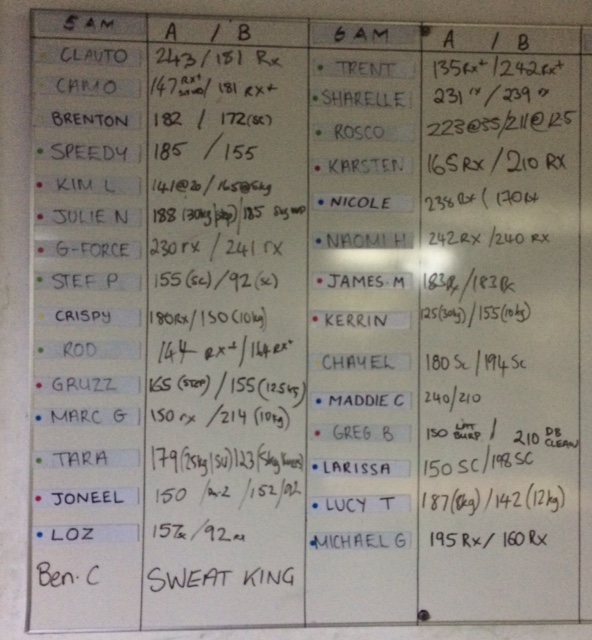 5 AM A / B
CLAUTO 243/181 Rx
CAMO 147 RX+ / 181 RX+
BRENTON 182 / 172(sc)
SPEEDY 185 / 155
KIM L 141@20/165@5kg
JULIE N 188 (30kg/step)/185
G-FORCE 230 rx / 241 rx
STEF P 155 (sc)/92 (sc)
CRISPY 180Rx/150(10kg)
ROD 144 RX+/164RX+
GRUZZ 165 (STEP) / 155(12.5kg)
MARC G 150 rx / 214 (10kg)
TARA 179(25kg/SU)/123(5kg knees)
JONEEL 150 / 152/92
LOZ 157rx/92rx
Ben. C SWEAT KING
6 AM A / B
TRENT 135Rx+/242Rx+
SHARELLE 231 rx / 239 rx
ROSCO 223@35/211@12.5
KARSTEN 165 RX / 210 RX
NICOLE 238 Rx / 170Rx
NAOMI H 242 RX /240 RX
JAMES.M 183Rx/183Rx
KERRIN 125(30kg)/155(10kg)
CHAYEL 180 Sc /194 Sc
MADDIE C 240/210
GREG B 150 LAT BURP / 210 DB CLEAN
LARISSA 150 SC/198 SC
LUCY T 187(8kg)/142(12kg)
MICHAEL G 195 Rx/ 160 Rx